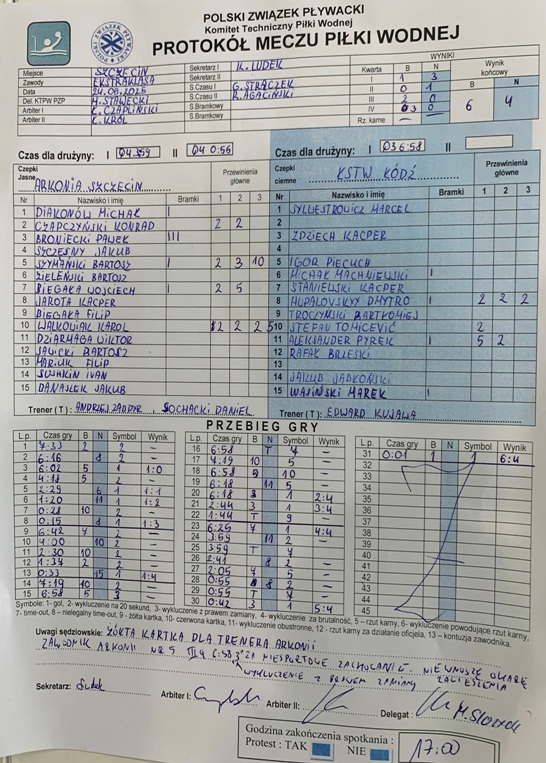 POLSKI ZWIĄZEK PŁYWACKI
Komitet Techniczny Piłki Wodnej
PROTOKÓŁ MECZU PIŁKI WODNEJ
Miejsce SZCZECIN
Zawody EKSTRAKLASA
Data 24.08.2025
Del. KTPW PZP M. STAWECKI
Arbiter I K. CZAPLIŃSKI
Arbiter II Ł. KRÓL
Sekretarz I K. LUDEK
Sekretarz II
S.Czasu I G. STRĄCZEK
S.Czasu II R. AGACIŃSKI
S.Bramkowy
S.Bramkowy
WYNIKI
Kwarta B N
I 1 3
II 0 1
III 2 0
IV 3 0
Rz. karne
Wynik końcowy
B N
6 4
Czas dla drużyny: I II Q4 0:55
Czas dla drużyny: I Q3 6:58 II
Czepki Jasne ARKONIA SZCZECIN
Przewinienia główne
Nr Nazwisko i imię Bramki 1 2 3
1 DIAKONÓW MICHAŁ I
2 CZAPCZYŃSKI KONRAD 2 2
3 BRONIECKI PAWEŁ III
4 SZCZĘSNY JAKUB
5 SZYMAŃSKI BARTOSZ I 2 3 10
6 ZIELEŃSKI BARTOSZ
7 BIEGAŁA WOJCIECH I 2 5
8 JAROTA KACPER
9 BIEGAŁA FILIP
10 WALKOWIAK KAROL 2 2 2
11 DZIARMAGA WIKTOR
12 SAWICKI BARTOSZ
13 FILIP
14 IVAN
15 DANAJEK JAKUB
Trener (T): ANDRZEJ , SOCHACKI DANIEL
Czepki ciemne KSTW ŁÓDŹ
Przewinienia główne
Nr Nazwisko i imię Bramki 1 2 3
1 SYLWESTROWICZ MARCEL
2
3 ZDZIECH KACPER
4
5 IGOR PIECUCH
6 MICHAŁ MACHNIEWSKI I
7 STANIEWSKI KACPER
8 HUPALOVSKYY DMYTRO I 2 2 2
9 TROCZYŃSKI BARTŁOMIEJ
10 STEFAN TOMICEVIĆ 2
11 ALEKSANDER PYREK I 5 2
12 RAFAŁ BRZESKI
13
14 JAKUB
15 WASIŃSKI MAREK I
Trener (T): EDWARD KUJAWA
PRZEBIEG GRY
L.p. Czas gry B N Symbol Wynik
1 7:33 2 2 –
2 6:16 8 2 –
3 6:02 5 1 1:0
4 4:18 5 2 –
5 2:29 6 1 1:1
6 1:20 11 1 1:2
7 0:28 10 2 –
8 0:15 8 1 1:3
9 6:42 7 2 –
10 4:00 10 2 –
11 2:30 10 2 –
12 1:34 2 2 –
13 0:33 15 1 1:4
14 7:19 10 2 –
15 6:58 5 3 –
L.p. Czas gry B N Symbol Wynik
16 6:58 T 7 –
17 4:19 10 5 –
18 6:58 5 10 –
19 6:18 11 5 –
20 6:18 1 2:4
21 2:44 3 1 3:4
22 1:44 T 9 –
23 6:25 7 1 4:4
24 3:59 11 2 –
25 3:59 T 7
26 2:41 8 2 –
27 2:05 7 5 –
28 0:55 8 2 –
29 0:55 T 7 –
30 0:42 3 1 5:4
L.p. Czas gry B N Symbol Wynik
31 0:01 1 1 6:4
32
33
34
35
36
37
38
39
40
41
42
43
44
45
Symbole: 1- gol, 2- wykluczenie na 20 sekund, 3- wykluczenie z prawem zamiany, 4- wykluczenie za brutalność, 5 – rzut karny, 6- wykluczenie powodujące rzut karny,
7- time-out, 8 – nielegalny time-out, 9 - żółta kartka, 10- czerwona kartka, 11- wykluczenie obustronne, 12 - rzut karny za działanie oficjela, 13 – kontuzja zawodnika.
Uwagi sędziowskie: ŻÓŁTA KARTKA DLA TRENERA ARKONII
ZAWODNIK ARKONII NR 5 6:58 ZA NIESPORTOWE ZACHOWANIE.
WYKLUCZENIE Z PRAWEM ZAMIANY
Sekretarz: Ludek Arbiter I: Arbiter II: Delegat:
Godzina zakończenia spotkania : 17:00
Protest : TAK NIE